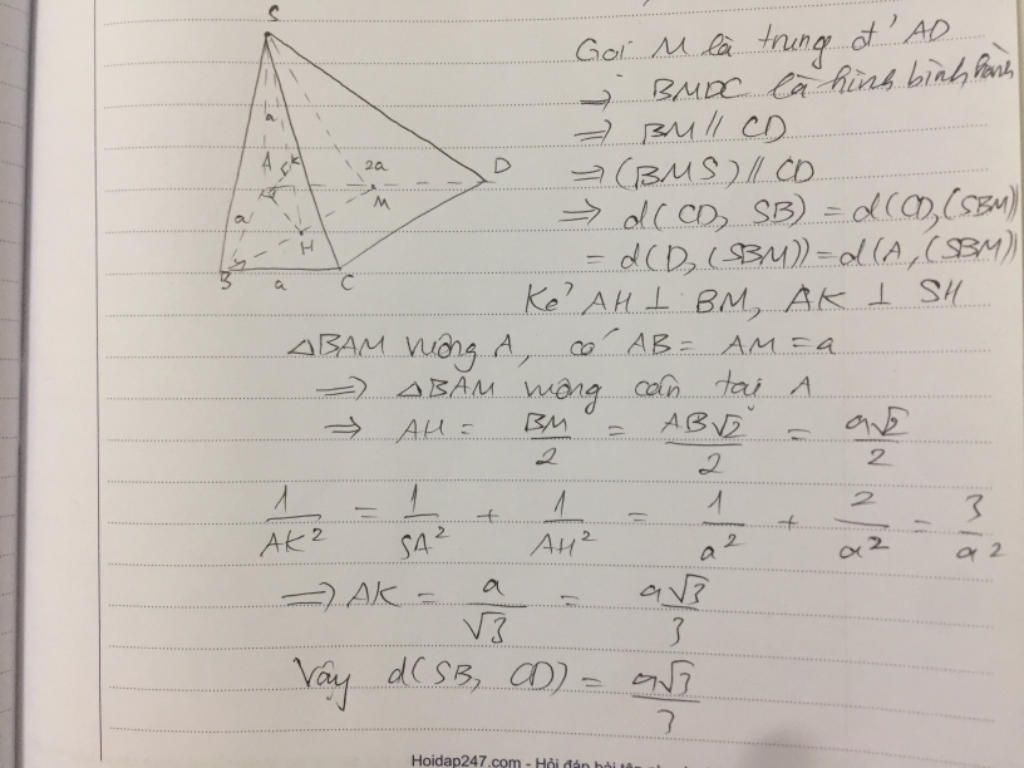 S
a
A
K
2a
D
M
a
H
B
a
C
Gọi M là trung đ' AD
⇒ BMDC là hình bình hành
⇒ BM // CD
⇒ (BMS) // CD
⇒ d(CD, SB) = d(CD,(SBM))
= d(D,(SBM)) = d(A,(SBM))
Kẻ AH ⊥ BM, AK ⊥ SH
△BAM vuông A, có AB = AM = a
⇒ △BAM vuông cân tại A
⇒ AH = BM/2 = AB√2/2 = a√2/2
1/AK² = 1/SA² + 1/AH² = 1/a² + 2/a² = 3/a²
⇒ AK = a/√3 = a√3/3
Vậy d(SB, CD) = a√3/3
Hoidap247.com - Hỏi đáp bài tập